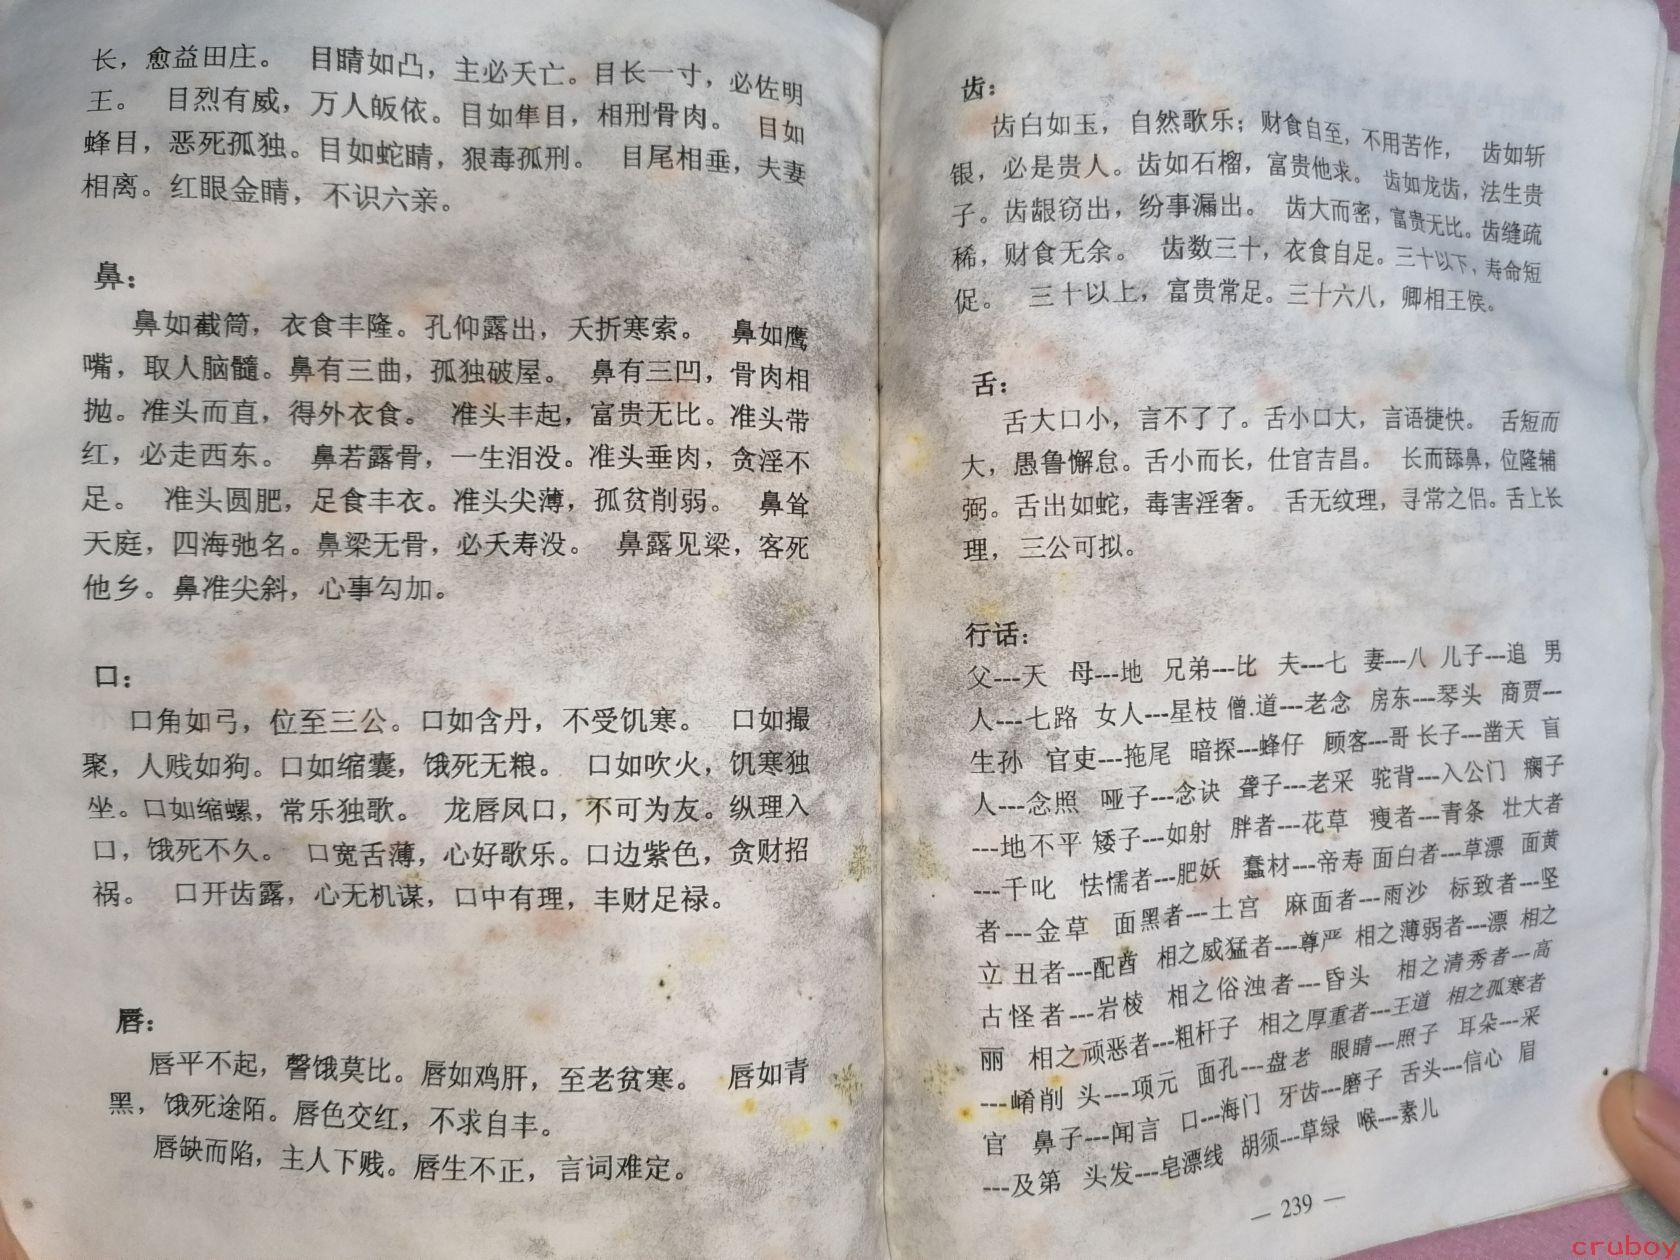 长，愈益田庄。 目睛如凸，主必夭亡。目长一寸，必佐明
王。 目烈有威，万人皈依。目如隼目，相刑骨肉。 目如
蜂目，恶死孤独。目如蛇睛，狠毒孤刑。 目尾相垂，夫妻
相离。红眼金睛，不识六亲。
鼻：
鼻如截筒，衣食丰隆。孔仰露出，夭折寒索。 鼻如鹰
嘴，取人脑髓。鼻有三曲，孤独破屋。 鼻有三凹，骨肉相
抛。准头而直，得外衣食。 准头丰起，富贵无比。准头带
红，必走西东。 鼻若露骨，一生泪没。准头垂肉，贪淫不
足。 准头圆肥，足食丰衣。准头尖薄，孤贫削弱。 鼻耸
天庭，四海弛名。鼻梁无骨，必夭寿没。 鼻露见梁，客死
他乡。鼻准尖斜，心事勾加。
口：
口角如弓，位至三公。口如含丹，不受饥寒。 口如撮
聚，人贱如狗。口如缩囊，饿死无粮。 口如吹火，饥寒独
坐。口如缩螺，常乐独歌。 龙唇凤口，不可为友。纵理入
口，饿死不久。 口宽舌薄，心好歌乐。口边紫色，贪财招
祸。 口开齿露，心无机谋，口中有理，丰财足禄。
唇：
唇平不起，罄饿莫比。唇如鸡肝，至老贫寒。 唇如青
黑，饿死途陌。唇色交红，不求自丰。
唇缺而陷，主人下贱。唇生不正，言词难定。
齿：
齿白如玉，自然歌乐；财食自至，不用苦作， 齿如斩
银，必是贵人。齿如石榴，富贵他求。 齿如龙齿，法生贵
子。齿龈窃出，纷事漏出。 齿大而密，富贵无比。齿缝疏
稀，财食无余。 齿数三十，衣食自足。三十以下，寿命短
促。 三十以上，富贵常足。三十六八，卿相王侯。
舌：
舌大口小，言不了了。舌小口大，言语捷快。 舌短而
大，愚鲁懈怠。舌小而长，仕官吉昌。 长而舔鼻，位隆辅
弼。舌出如蛇，毒害淫奢。 舌无纹理，寻常之侣。舌上长
理，三公可拟。
行话：
父---天 母---地 兄弟---比 夫---七 妻---八 儿子---追 男
人---七路 女人---星枝 僧.道---老念 房东---琴头 商贾---
生孙 官吏---拖尾 暗探---蜂仔 顾客---哥 长子---凿天 盲
人---念照 哑子---念诀 聋子---老采 驼背---入公门 瘸子
---地不平 矮子---如射 胖者---花草 瘦者---青条 壮大者
---千叱 怯懦者---肥妖 蠢材---帝寿 面白者---草漂 面黄
者---金草 面黑者---土宫 麻面者---雨沙 标致者---坚
立 丑者---配酋 相之威猛者---尊严 相之薄弱者---漂 相之
古怪者---岩棱 相之俗浊者---昏头 相之清秀者---高
丽 相之顽恶者---粗杆子 相之厚重者---王道 相之孤寒者
---崤削 头---项元 面孔---盘老 眼睛---照子 耳朵---采
官 鼻子---闻言 口---海门 牙齿---磨子 舌头---信心 眉
---及第 头发---皂漂线 胡须---草绿 喉---素儿
— 239 —
cruboy